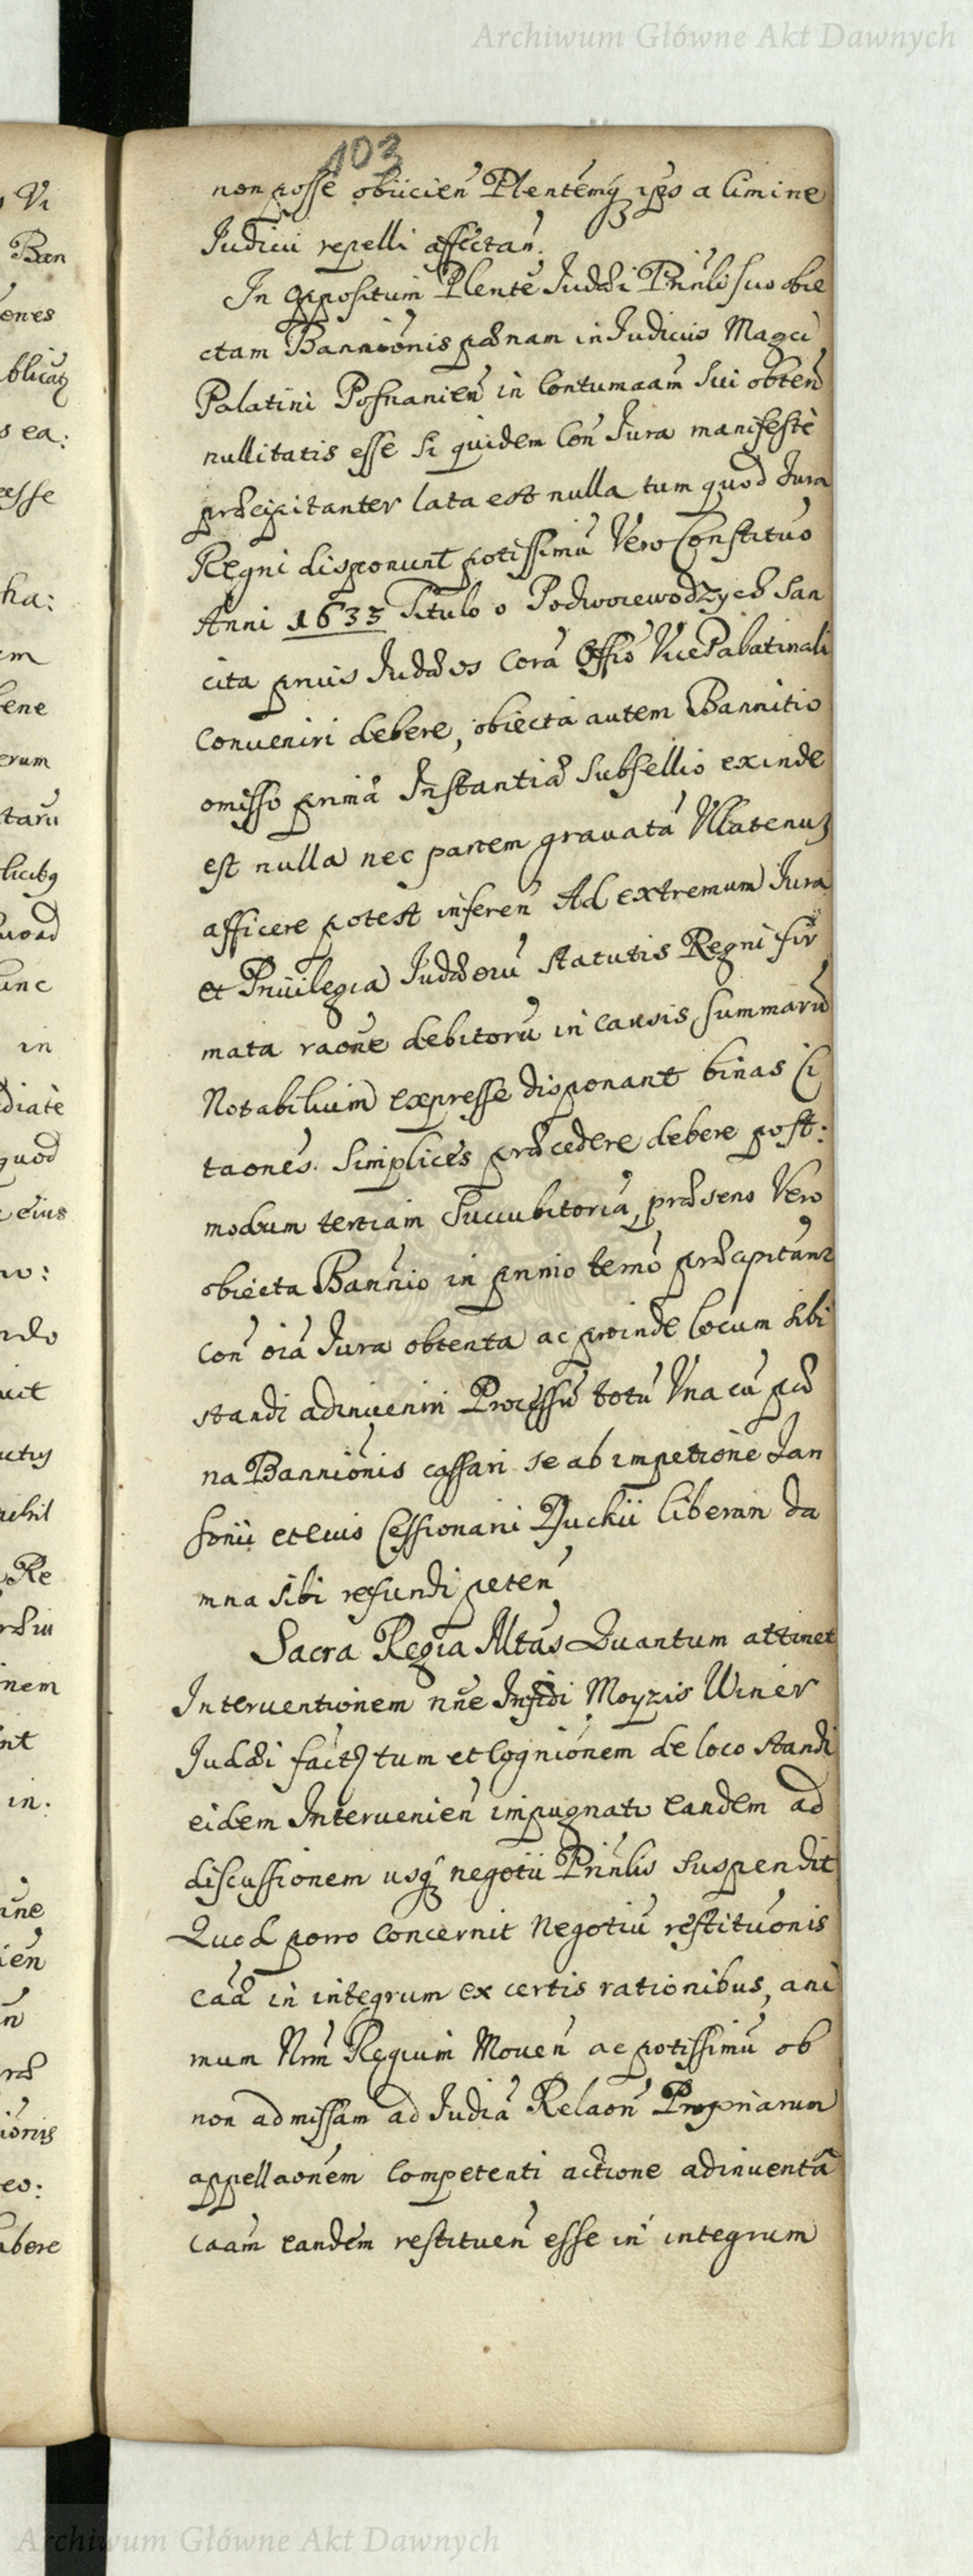 Archiwum Główne Akt Dawnych
103
non posse obiicien̄ Plentemq́ ipso a limine
Judicii repelli affectan̄.
In oppositum Plente Judæi Prinli suo obie
ctam Bannionis pænam in Judiciis Magci
Palatini Posnanien̄ in contumaam sui obten̄
nullitatis esse si quidem con̄ Jura manifestè
præcipitanter lata est nulla tum quod Jura
Regni disponunt potissimū Vero Constituo
Anni 1633 Titulo o Podwoiewodzych San
cita prius Judæos corā Offio VicePalatinali
conveniri debere, obiecta autem Bannitio
omisso primæ Instantiæ Subsellio exinde
est nulla nec partem gravatā Ullatenus
afficere potest inferen̄ Ad extremum Jura
et Privilegia Judæorū Statutis Regni fir
mata raone debitorū in causis summarū
Notabilium expresse disponant binas Ci
taones simplices præcedere debere post:
modum tertiam Succubitoriā, præsens Vero
obiecta Bannio in primo termo præcipitanr
con̄ oia Jura obtenta ac proinde locum sibi
standi adinveniri Processū totū Una cū pæ
na Bannionis cassari se ab impetione Jan
sonii et eius Cessionarii Duckii liberari da
mna sibi refundi peten̄
Sacra Regia Mtas Quantum attinet
Interventionem nne Infidi Moyzis Winer
Judæi fact tum et Cognionem de loco standi
eidem Intervenien̄ impugnati eandem ad
discussionem usq́ negotii Prinlis suspendit
Quod porro concernit Negotiū restituonis
caæ in integrum ex certis rationibus, ani
mum Nrm Regium Moven̄ ac potissimū ob
non admissam ad Judia Relaon̄ Propriarum
appellaonem competenti actione adinventā
caam eandem restituen̄ esse in integrum
Vi
Ban
enes
blicatq
s ea:
cesse
ha:
em
bene
erum
tarū
licibq
unc
in
diatè
quod
eius
no:
ndo
uit
uctus
nihil
Re
nem
nt
in.
ien̄
n̄
ionis
eo:
abere
Archiwum Główne Akt Dawnych